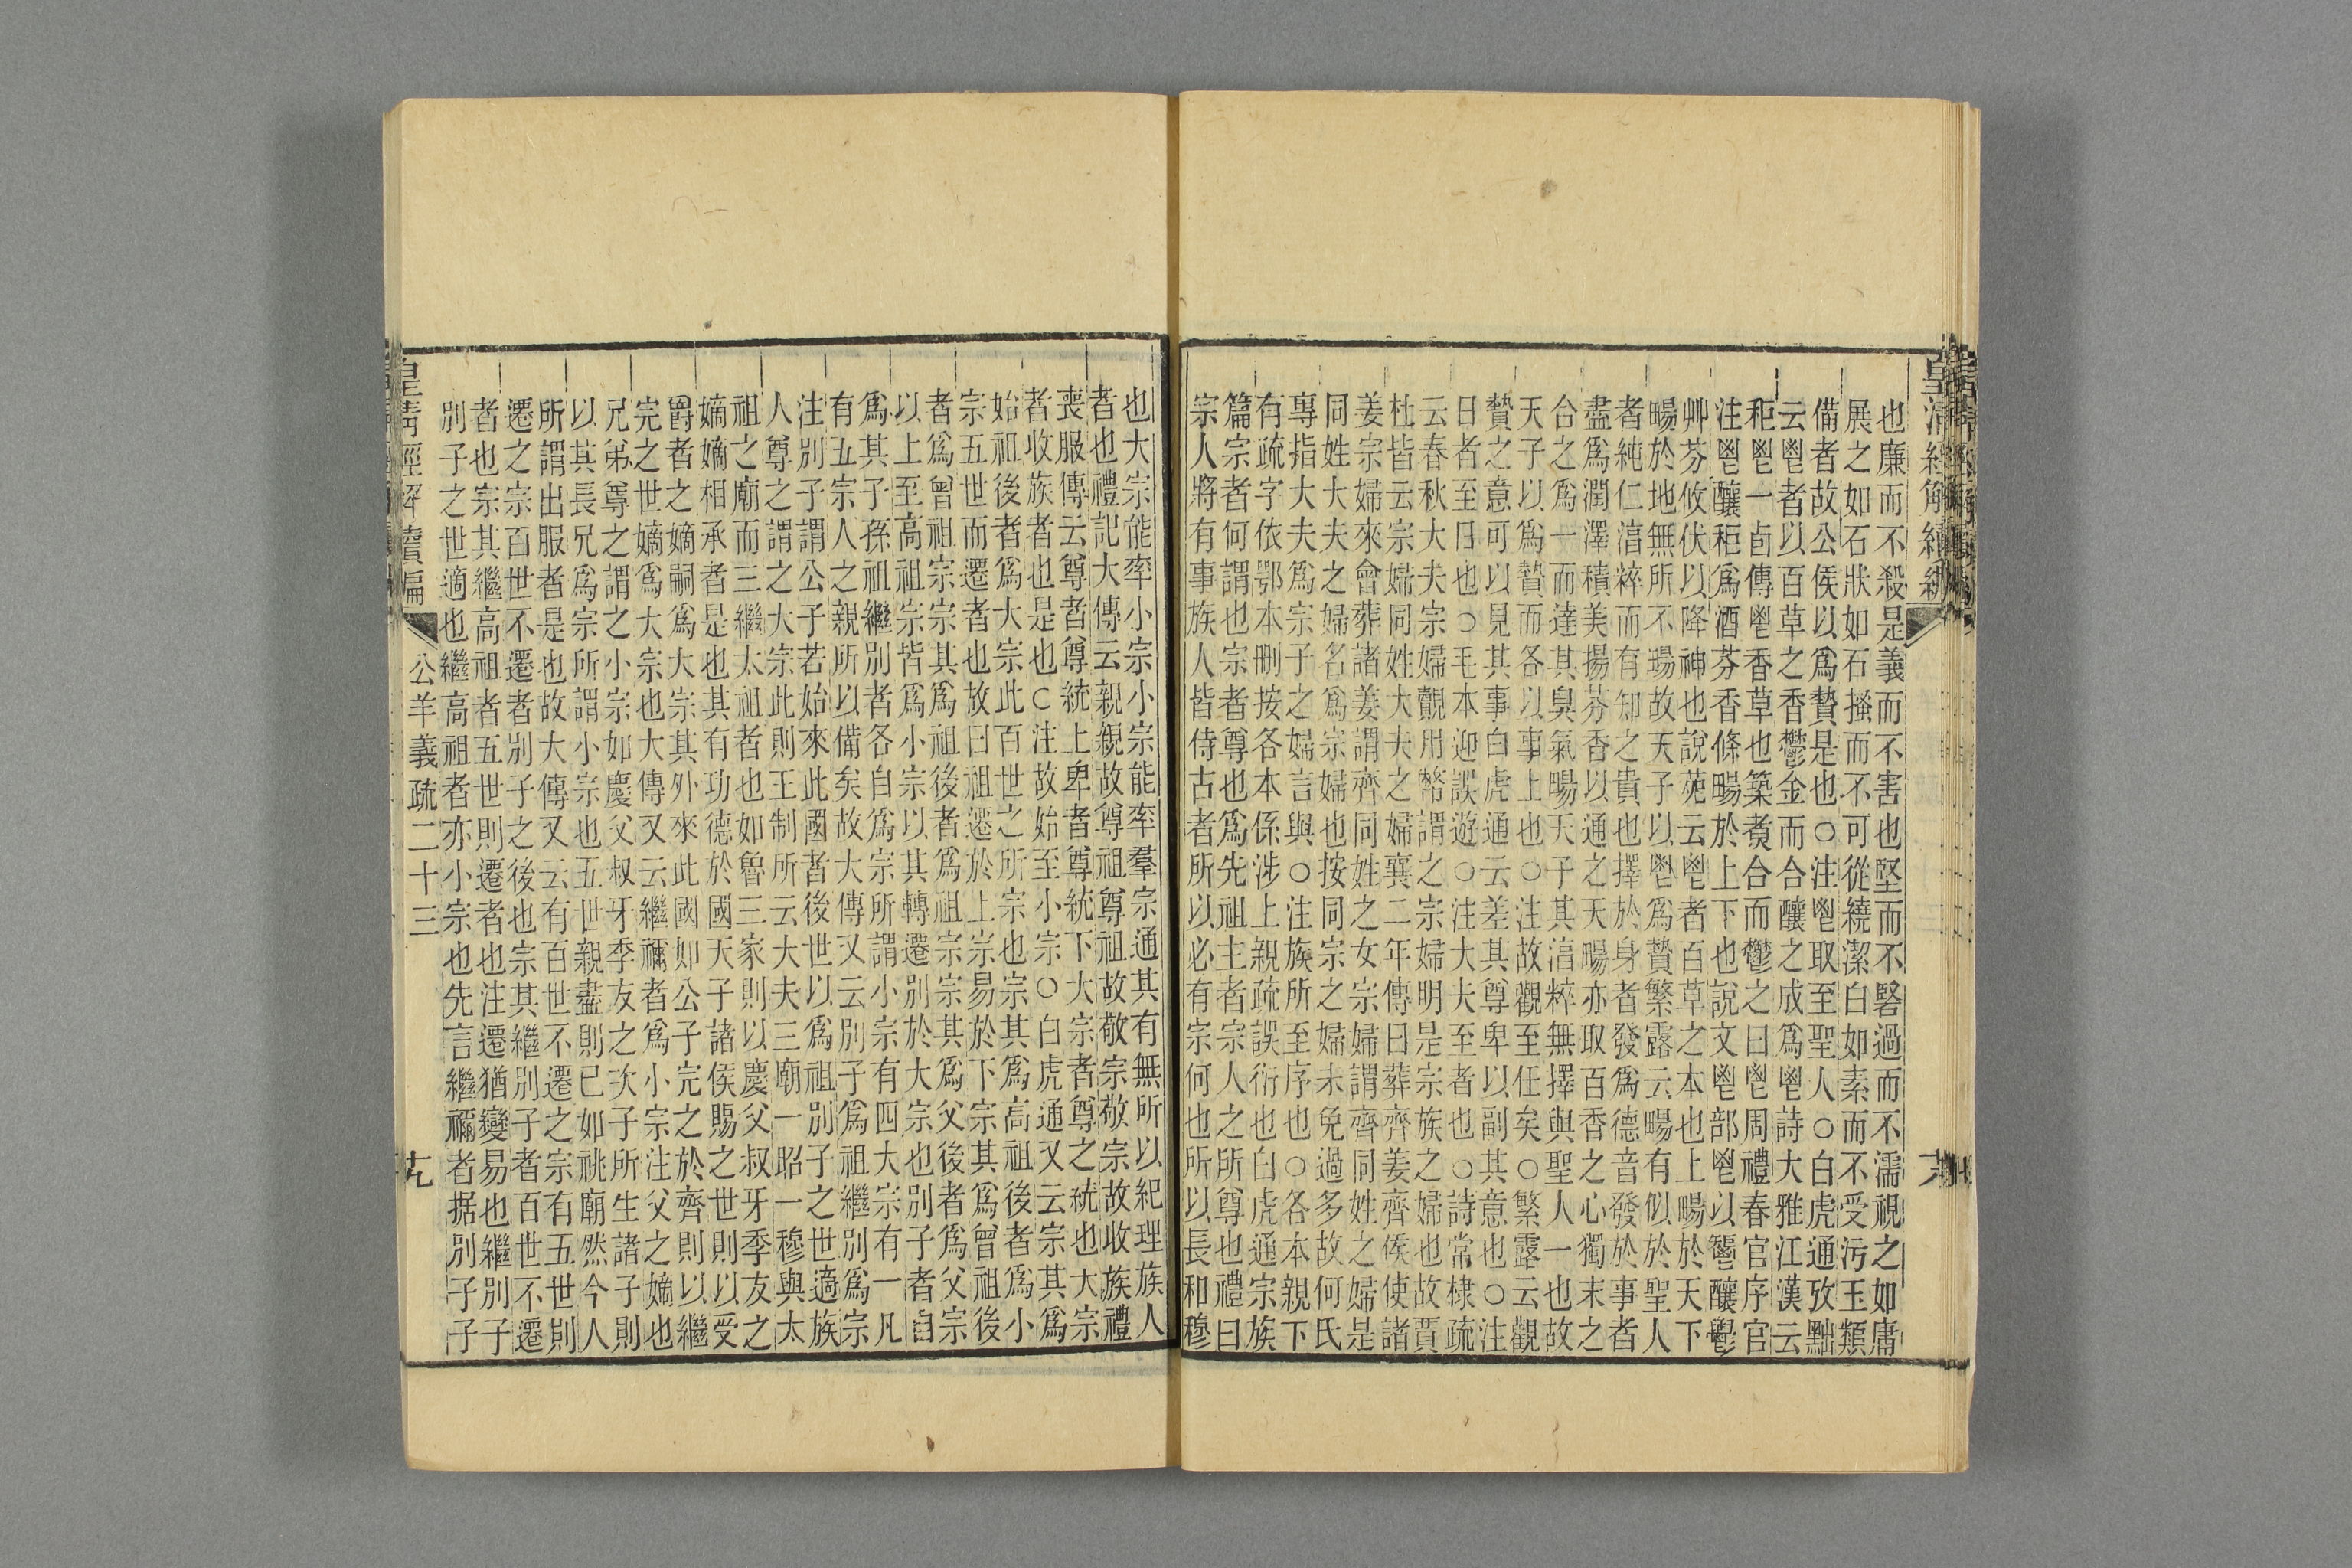 皇清經解續編
也廉而不殺是義而不害也堅而不硻過而不濡視之如庸
展之如石狀如石搔而不可從繞潔白如素而不受污玉類
備者故公侯以爲贄是也○注鬯取至聖人○白虎通攷黜
云鬯者以百草之香鬱金而合釀之成爲鬯詩大雅江漢云
秬鬯一卣傳鬯香草也築煑合而鬱之曰鬯周禮春官序官
注鬯釀秬爲酒芬香條暢於上下也說文鬯部鬯以秬釀鬱
艸芬攸伏以降神也說苑云鬯者百草之本也上暢於天下
暢於地無所不暢故天子以鬯爲贄繁露云暢有似於聖人
者純仁淯粹而有知之貴也擇於身者發爲德音發於事者
盡爲潤澤積美揚芬香以通之天暢亦取百香之心獨末之
合之爲一而達其臭氣暢天子其淯粹無擇與聖人一也故
天子以爲贄而各以事上也○注故觀至任矣○繁露云觀
贄之意可以見其事白虎通云差其尊卑以副其意也○注
日者至日也○毛本迎誤遊○注大夫至者也○詩常棣疏
云春秋大夫宗婦覿用幣謂之宗婦明是宗族之婦也故賈
杜皆云宗婦同姓大夫之婦襄二年傳曰葬齊姜齊侯使諸
姜宗婦來會葬諸姜謂齊同姓之女宗婦謂齊同姓之婦是
同姓大夫之婦名爲宗婦也按同宗之婦未免過多故何氏
專指大夫爲宗子之婦言與○注族所至序也○各本親下
有疏字依鄂本刪按各本係涉上親疏誤衍也白虎通宗族
篇宗者何謂也宗者尊也爲先祖主者宗人之所尊也禮曰
宗人將有事族人皆侍古者所以必有宗何也所以長和穆
也大宗能率小宗小宗能率羣宗通其有無所以紀理族人
者也禮記大傳云親親故尊祖尊祖故敬宗敬宗故收族禮
喪服傳云尊者尊統上卑者尊統下大宗者尊之統也大宗
者收族者也是也○注故始至小宗○白虎通又云宗其爲
始祖後者爲大宗此百世之所宗也宗其爲高祖後者爲小
宗五世而遷者也故曰祖遷於上宗易於下宗其爲曾祖後
者爲曾祖宗宗其爲祖後者爲祖宗宗其爲父後者爲父宗
以上至高祖宗皆爲小宗以其轉遷別於大宗也別子者自
爲其子孫祖繼別者各自爲宗所謂小宗有四大宗有一凡
有五宗人之親所以備矣故大傳又云別子爲祖繼別爲宗
注別子謂公子若始來此國者後世以爲祖別子之世適族
人尊之謂之大宗此則王制所云大夫三廟一昭一穆與太
祖之廟而三繼太祖者也如魯三家則以慶父叔牙季友之
嫡嫡相承者是也其有功德於國天子諸侯賜之世則以受
爵者之嫡嗣爲大宗其外來此國如公子完之於齊則以繼
完之世嫡爲大宗也大傳又云繼禰者爲小宗注父之嫡也
兄弟尊之謂之小宗如慶父叔牙季友之次子所生諸子則
以其長兄爲宗所謂小宗也五世親盡則已如祧廟然今人
所謂出服者是也故大傳又云有百世不遷之宗有五世則
遷之宗百世不遷者別子之後也宗其繼別子者百世不遷
者也宗其繼高祖者五世則遷者也注遷猶變易也繼別子
別子之世適也繼高祖者亦小宗也先言繼禰者据別子子
皇清經解續編 公羊義疏二十三 十九